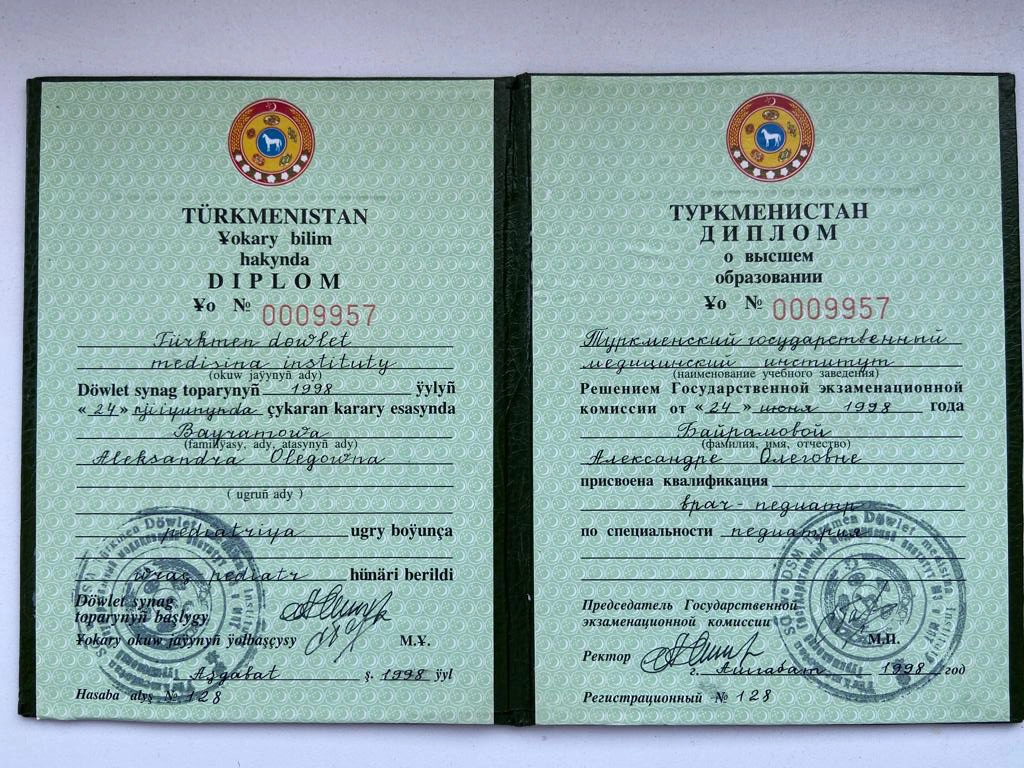 TÜRKMENISTAN
Ɏokary bilim
hakynda
DIPLOM
Ɏo № 0009957
Türkmen döwlet
medisina instituty
(okuw jaɏynyñ ady)
Döwlet synag toparynyñ 1998 ɏylyñ
« 24 » iɏunynda çykaran karary esasynda
Baɏramowa
(familiɏasy, ady, atasynyñ ady)
Aleksandra Olegowna
( ugruñ ady )
pediatriɏa ugry boɏunça
wraç pediatr hünäri berildi
Döwlet synag
toparynyñ başlygy
Ɏokary okuw jaɏynyñ ɏolbaşçysy
M.Ɏ.
Aşgabat ş. 1998 ɏyl
Hasaba alyş № 128
ТУРКМЕНИСТАН
ДИПЛОМ
о высшем
образовании
Ɏo № 0009957
Туркменский государственный
медицинский институт
(наименование учебного заведения)
Решением Государственной экзаменационной
комиссии от « 24 » июня 1998 года
Байрамовой
(фамилия, имя, отчество)
Александре Олеговне
присвоена квалификация
врач-педиатр
по специальности педиатрия
Председатель Государственной
экзаменационной комиссии
М.П.
Ректор
г. Ашгабат 1998 год
Регистрационный № 128